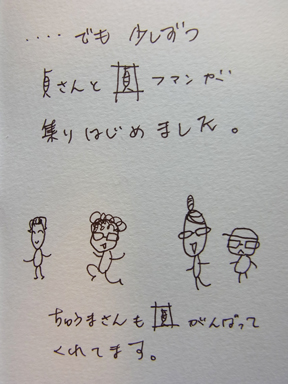 ‥‥でも 少しずつ
貞さんと 圓 フマンが
集りはじめました。
ちゅうまさんも 圓 がんばって
くれてます。